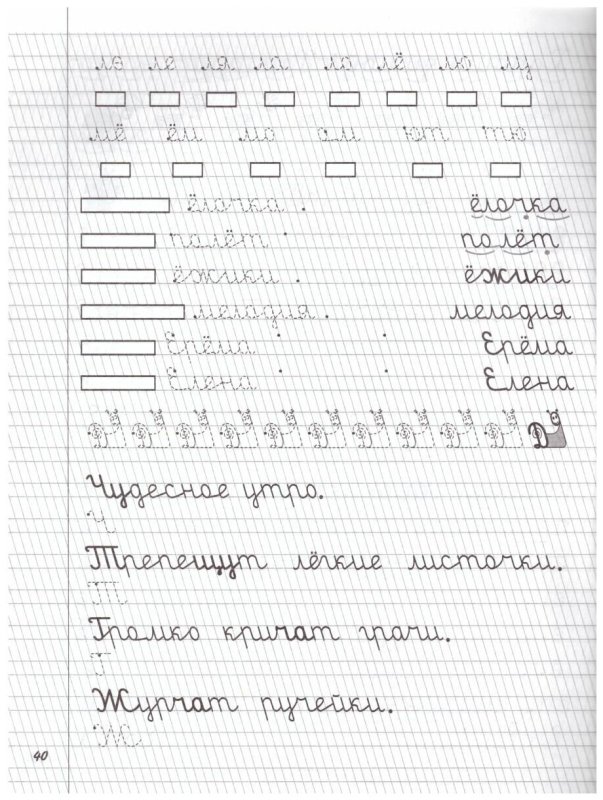 лэ ле ля ла ло лё лю лу
мё ём мо ам ют тю
ёлочка . ёлочка
полёт полёт
ёжики . ёжики
мелодия . мелодия
Ерёма Ерёма
Елена Елена
Д Д Д Д Д Д Д Д Д Д Д
Чудесное утро.
Ч
Трепещут лёгкие листочки.
Т
Громко кричат грачи.
Г
Журчат ручейки.
Ж
40